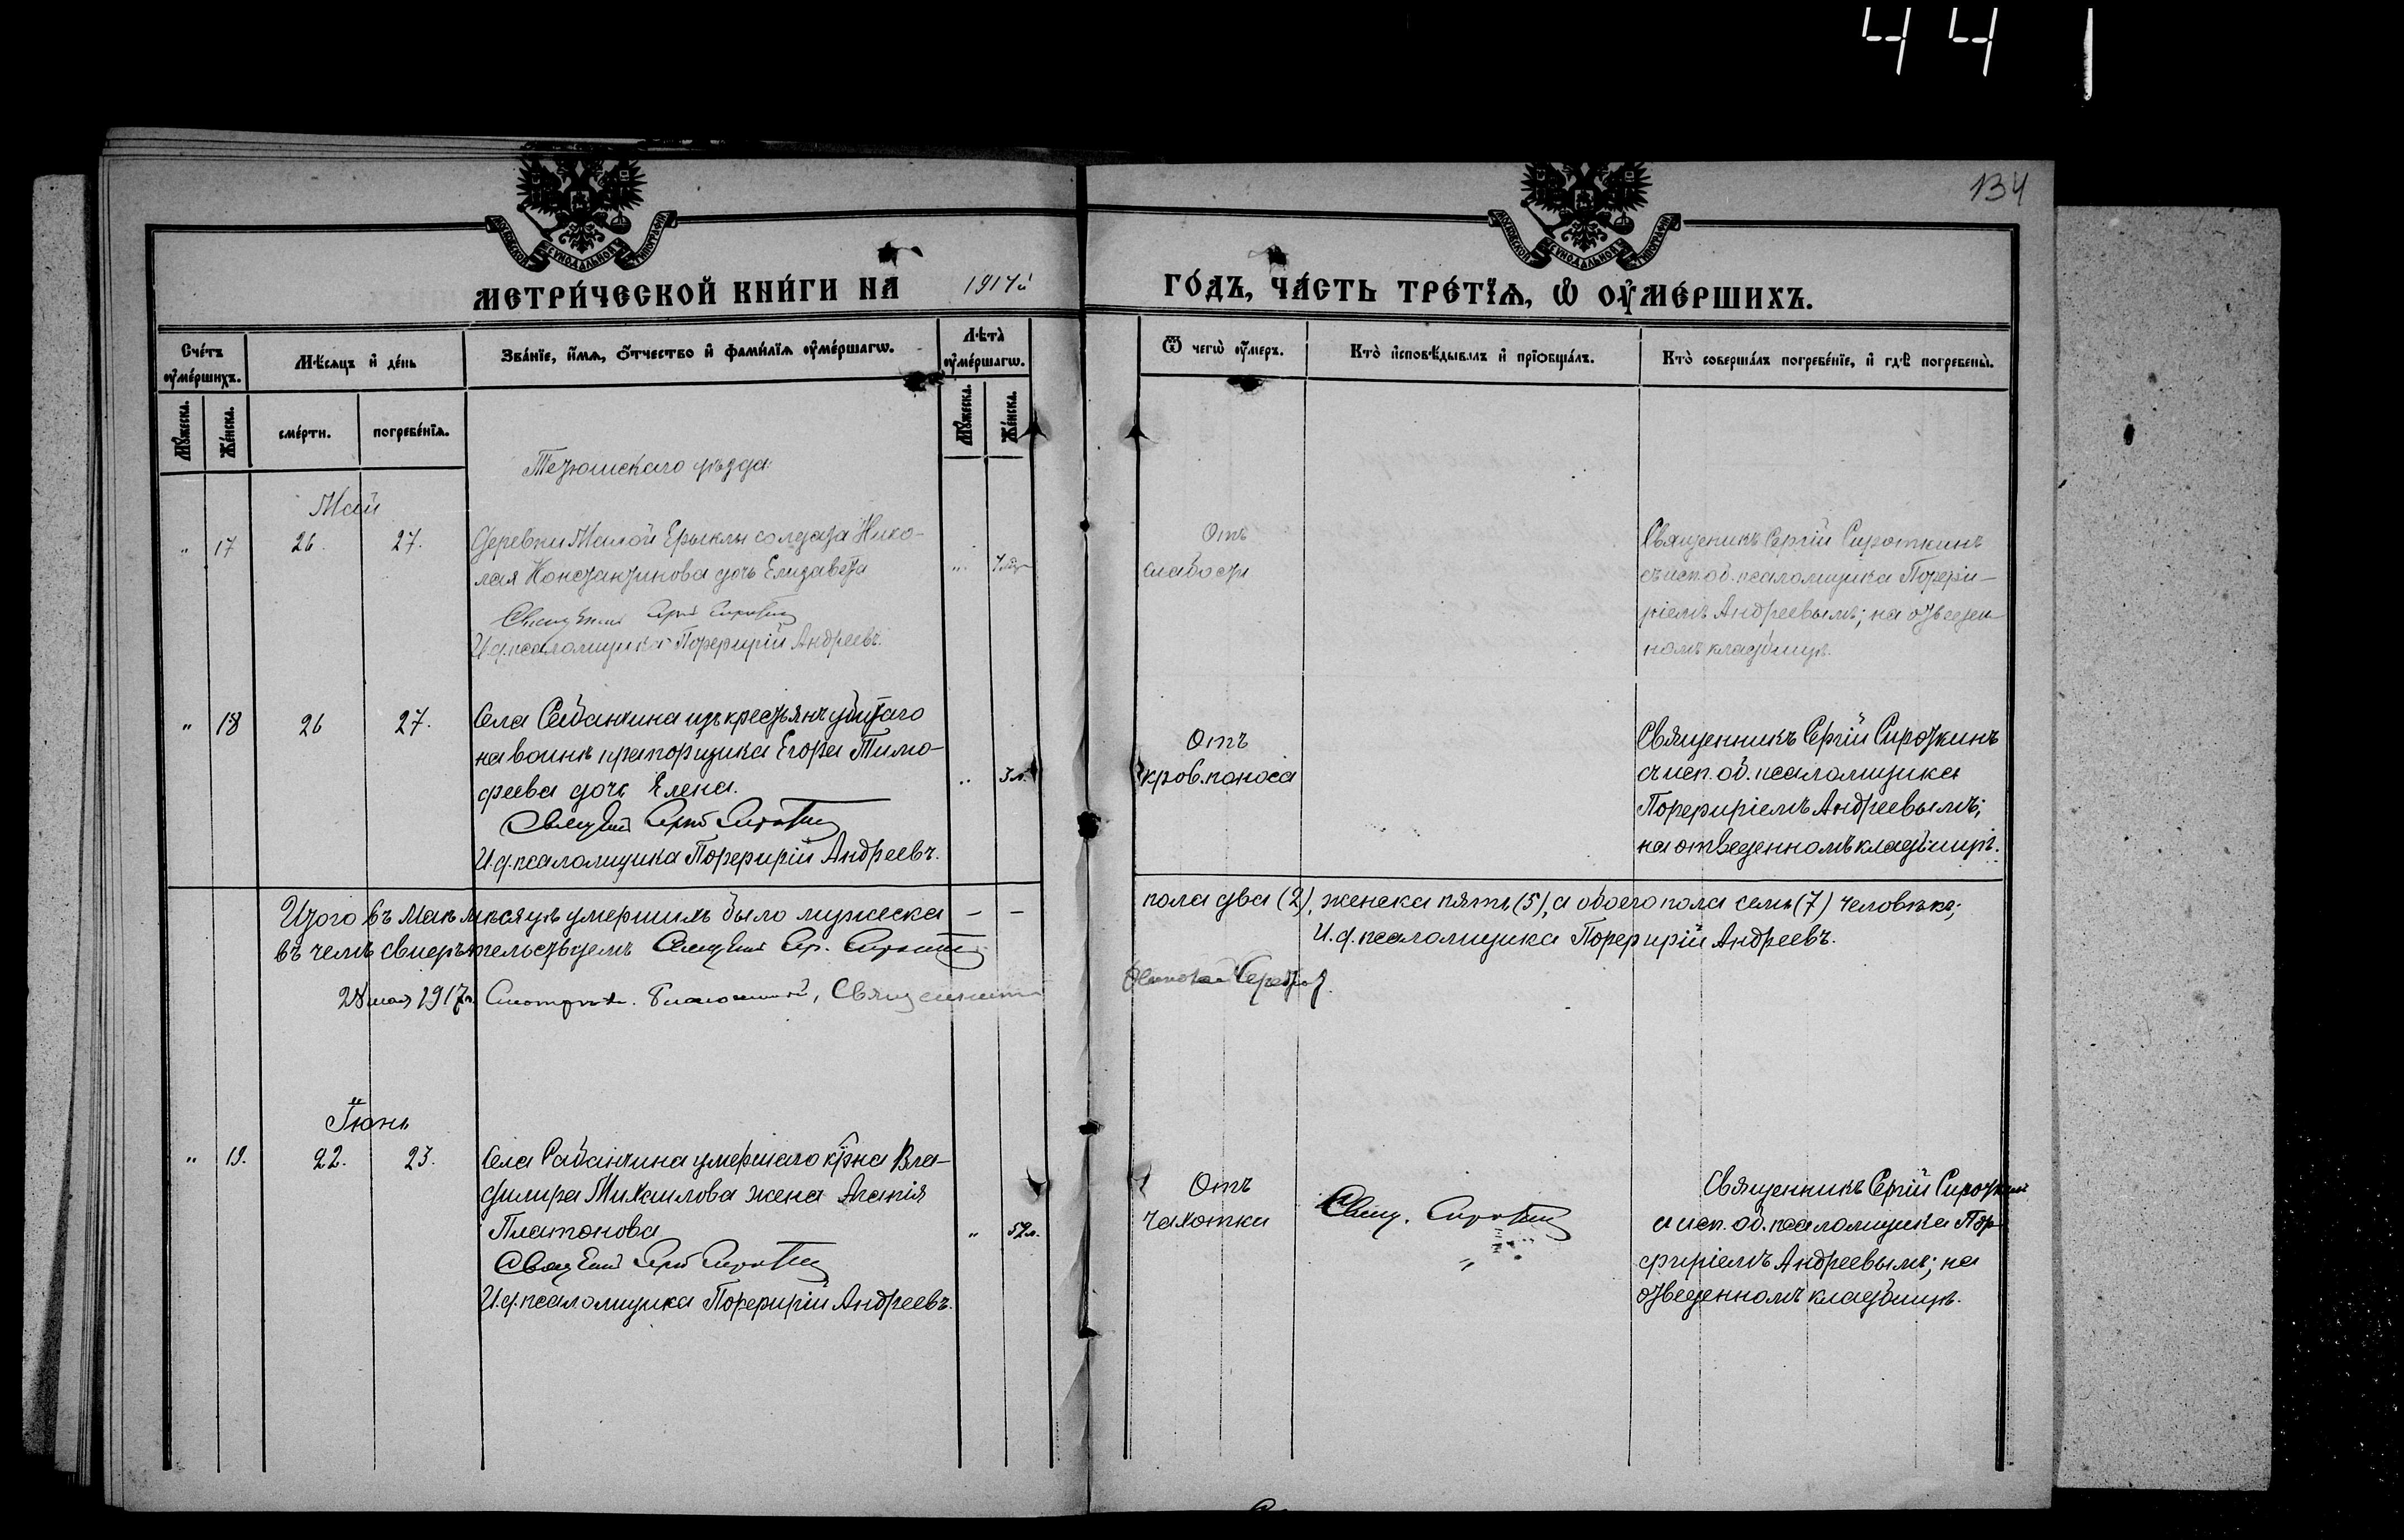 44 1
134
МОСКОВСКОЙ СѴНОДАЛЬНОЙ ТИПОГРАФІИ
МОСКОВСКОЙ СѴНОДАЛЬНОЙ ТИПОГРАФІИ
МЕТРИ́ЧЕСКОЙ КНИ́ГИ НА 1917й ГО́ДЪ, ЧА́СТЬ ТРЕ́ТЇѦ, Ѡ҆ ОУ҆МЕ́РШИХЪ.
Сче́тъ оу҆ме́ршихъ.
Мꙋ́жеска.
Же́нска.
Мѣ́сѧцъ и҆ де́нь
сме́рти.
погребе́нїѧ.
Зва́нїе, и҆́мѧ, ѻ҆́тчество и҆ фами́лїѧ оу҆ме́ршагѡ.
Лѣ́та оу҆ме́ршагѡ.
Мꙋ́жеска.
Же́нска.
Ѿ чегѡ̀ оу҆́меръ.
Кто̀ и҆сповѣ́дывалъ и҆ прїѻбща́лъ.
Кто̀ соверша́лъ погребе́нїе, и҆ гдѣ̀ погребены̀.
Тетюшскаго уѣзда
Май
" 17 26. 27.
Деревни Малой Ерыклы солдата Нико-
лая Константинова дочь Елизавета
Священникъ Сергій Сироткинъ
И.д.псаломщика Порфирій Андреевъ.
"
Отъ
слабости
Священикъ Сергій Сироткинъ
съ исп.об.псаломщика Порфи-
ріемъ Андреевымъ; на отведен-
номъ кладбищѣ.
" 18 26 27.
Села Сабанчина изъ крестьянъ убитаго
на войнѣ прапорщика Егора Тимо-
феева дочь Елена.
Священникъ Сергій Сироткинъ
И.д.псаломщика Порфирій Андреевъ.
" 3 л.
Отъ
кров.поноса
Священникъ Сергій Сироткинъ
съ исп.об.псаломщика
Порфиріемъ Андреевымъ;
на отведенномъ кладбищѣ.
Итого въ Маѣ мѣсяцѣ умершихъ было мужеска – – пола два (2), женска пять (5), а обоего пола семь (7) человѣкъ;
въ чемъ свидѣтельствуемъ Священникъ Сер. Сироткинъ И.д.псаломщика Порфирій Андреевъ.
28 мая 1917 г. Смотрѣлъ. Благочинный, Священникъ
Іюнь
" 19. 22. 23.
Села Сабанчина умершаго кр̃на Вла-
димира Михаилова жена Агапія
Платонова
Священникъ Сергій Сироткинъ
И.д.псаломщика Порфирій Андреевъ.
" 52 л.
Отъ
чахотки
Свящ. Сироткинъ
Священникъ Сергій Сироткинъ
съ исп.об.псаломщика Пор-
фиріемъ Андреевымъ; на
отведенномъ кладбищѣ.